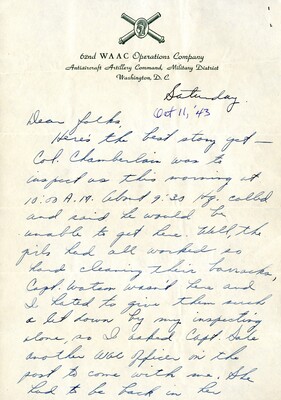 62nd WAAC Operations Company
Antiaircraft Artillery Command, Military District
Washington, D. C.
Saturday
Oct 11, '43
Dear folks,
Here's the best story yet —
Col. Chamberlain was to
inspect us this morning at
10:00 A.M. About 9:30 Hq. called
and said he would be
unable to get here. Well, the
girls had all worked so
hard cleaning their barracks,
Capt. Watson wasn't here and
I hated to give them such
a let down by my inspecting
alone, so I asked Capt.
another WAC Officer on the
post to come with me. She
had to be back in her